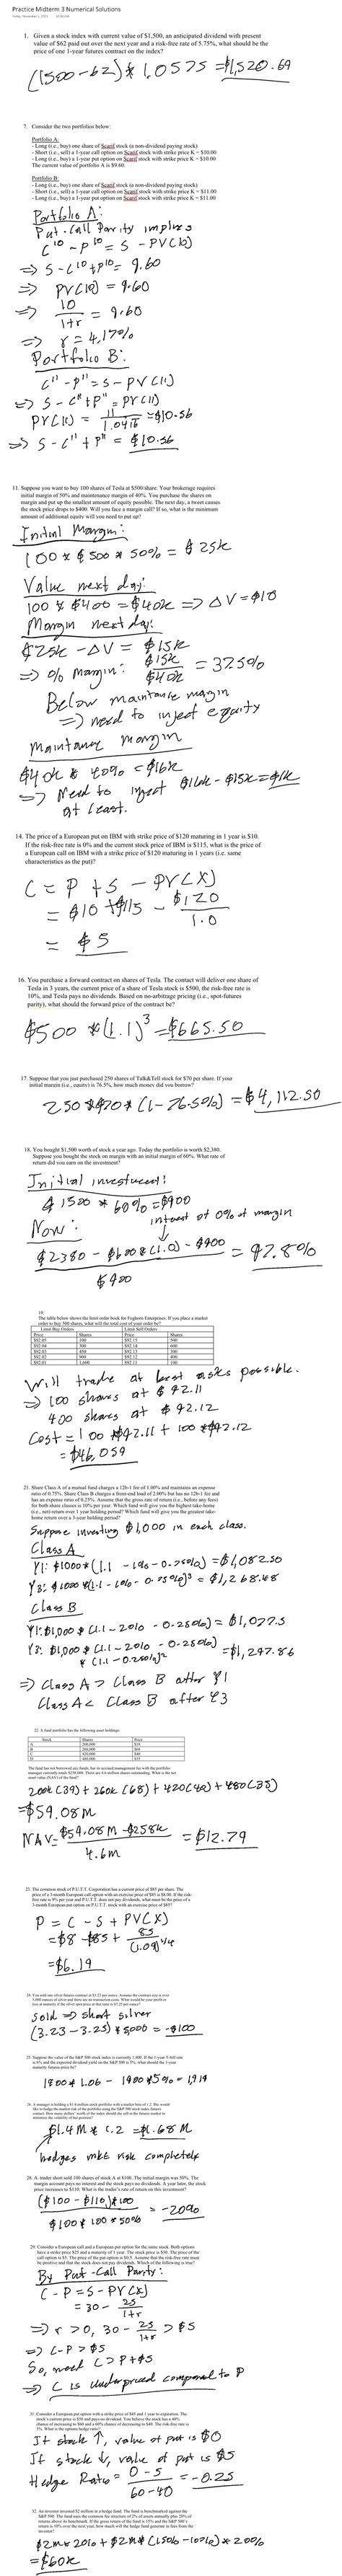 Practice Midterm 3 Numerical Solutions
1. Given a stock index with current value of $1,500, an anticipated dividend with present
value of $62 paid out over the next year and a risk-free rate of 5.75%, what should be the
price of one 1-year futures contract on the index?
(1500-62) * 1.0575 = $1,520.69
7. Consider the two portfolios below:
Portfolio A:
- Long (i.e., buy) one share of Scarif stock (a non-dividend paying stock)
- Short (i.e., sell) a 1-year call option on Scarif stock with strike price K = $10.00
- Long (i.e., buy) a 1-year put option on Scarif stock with strike price K = $10.00
The current value of portfolio A is $9.60.
Portfolio B:
- Long (i.e., buy) one share of Scarif stock (a non-dividend paying stock)
- Short (i.e., sell) a 1-year call option on Scarif stock with strike price K = $11.00
- Long (i.e., buy) a 1-year put option on Scarif stock with strike price K = $11.00
Portfolio A:
Put-Call Parity implies
C^10 - P^10 = S - PV(10)
=> S - C^10 + P^10 = 9.60
=> PV(10) = 9.60
=> 10/(1+r) = 9.60
=> r = 4.17%
Portfolio B:
C^11 - P^11 = S - PV(11)
=> S - C^11 + P^11 = PV(11)
PV(11) = 11/1.0416 = $10.56
=> S - C^11 + P^11 = $10.56
11. Suppose you want to buy 100 shares of Tesla at $500/share. Your brokerage requires
initial margin of 50% and maintenance margin of 40%. You purchase the shares on
margin and put up the smallest amount of equity possible. The next day, a tweet causes
the stock price drops to $400. Will you face a margin call? If so, what is the minimum
amount of additional equity will you need to put up?
Initial Margin:
100 * $500 * 50% = $25k
Value next day:
100 * $400 = $40k => ΔV = $10
Margin next day:
$25k - ΔV = $15k
=> % Margin: $15k/$40k = 37.5%
Below maintance margin
=> need to inject equity
Maintance margin
$40k * 40% = $16k
=> Need to inject $16k - $15k = $1k
at least.
14. The price of a European put on IBM with strike price of $120 maturing in 1 year is $10.
If the risk-free rate is 0% and the current stock price of IBM is $115, what is the price of
a European call on IBM with a strike price of $120 maturing in 1 years (i.e. same
characteristics as the put)?
C = P + S - PV(X)
= $10 + $115 - $120/1.0
= $5
16. You purchase a forward contract on shares of Tesla. The contact will deliver one share of
Tesla in 3 years, the current price of a share of Tesla stock is $500, the risk-free rate is
10%, and Tesla pays no dividends. Based on no-arbitrage pricing (i.e., spot-futures
parity), what should the forward price of the contract be?
$500 * (1.1)^3 = $665.50
17. Suppose that you just purchased 250 shares of Talk&Tell stock for $70 per share. If your
initial margin (i.e., equity) is 76.5%, how much money did you borrow?
250 * $70 * (1-76.5%) = $4,112.50
18. You bought $1,500 worth of stock a year ago. Today the portfolio is worth $2,380.
Suppose you bought the stock on margin with an initial margin of 60%. What rate of
return did you earn on the investment?
Initial investment:
$1500 * 60% = $900
Now: interest of 0% of margin
($2380 - $600 * (1.0) - $900)/$900 = 97.8%
19.
The table below shows the limit order book for Foghorn Enterprises. If you place a market
order to buy 500 shares, what will the total cost of your order be?
Limit Buy Orders Limit Sell Orders
Price Shares Price Shares
Will trade at best asks possible.
=> 100 shares at $92.11
400 shares at $92.12
Cost = 100 * $92.11 + 100 * $92.12
= $46,059
21. Share Class A of a mutual fund charges a 12b-1 fee of 1.00% and maintains an expense
ratio of 0.75%. Share Class B charges a front-end load of 2.00% but has no 12b-1 fee and
has an expense ratio of 0.25%. Assume that the gross rate of return (i.e., before any fees)
for both share classes is 10% per year. Which fund will give you the highest take-home
(i.e., net) return over 1 year holding period? Which fund will give you the greatest take-
home return over a 3-year holding period?
Suppose investing $1,000 in each class.
Class A
Y1: $1000 * (1.1 - 1% - 0.75%) = $1,082.50
Y3: $1000 * (1.1 - 1% - 0.75%)^3 = $1,268.48
Class B
Y1: $1,000 * (1.1 - 2% - 0.25%) = $1,077.5
Y3: $1,000 * (1.1 - 2% - 0.25%)
* (1.1 - 0.25%)^2 = $1,297.86
=> Class A > Class B after Y1
Class A < Class B after Y3
22. A fund portfolio has the following asset holdings:
Stock Shares Price
200k(39) + 260k(68) + 420(42) + 480(35)
= $59.08M
NAV = ($59.08M - $258k)/4.6m = $12.79
23. The common stock of P.U.T.T. Corporation has a current price of $85 per share. The
price of a 3-month European call option with an exercise price of $85 is $8.00. If the risk-
free rate is 9% per year and P.U.T.T. does not pay dividends, what must be the price of a
3-month European put option on P.U.T.T. stock with an exercise price of $85?
P = C - S + PV(X)
= $8 - $85 + 85/(1.09)^1/4
= $6.19
sold => short silver
(3.23 - 3.25) * 5000 = -$100
25. Suppose the value of the S&P 500 stock index is currently 1,900. If the 1-year T-bill rate
is 6% and the expected dividend yield on the S&P 500 is 5%, what should the 1-year
maturity futures price be?
1900 * 1.06 - 1900 * 5% = 1,919
$1.4M * 1.2 = $1.68M
hedges mkt risk completely
28. A trader short sold 100 shares of stock A at $100. The initial margin was 50%. The
margin account pays no interest and the stock pays no dividends. A year later, the stock
price increases to $110. What is the trader's rate of return on this investment?
($100 - $110) * 100/$100 * 100 * 50% = -20%
29. Consider a European call and a European put option for the same stock. Both options
have a strike price $25 and a maturity of 1 year. The stock price is $30. The price of the
call option is $5. The price of the put option is $0.5. Assume that the risk-free rate must
be positive and that the stock does not pay dividends. Which of the following is true?
By Put-Call Parity:
C - P = S - PV(X)
= 30 - 25/(1+r)
=> r > 0, 30 - 25/(1+r) > $5
=> C - P > $5
So, need C > P + $5
=> C is underpriced compared to P
31. Consider a European put option with a strike price of $45 and 1 year to expiration. The
stock's current price is $50 and pays no dividend. You believe the stock has a 40%
chance of increasing to $60 and a 60% chance of decreasing to $40. The risk-free rate is
5%. What is the options hedge ratio?
If stock ↑, value of put is $0
If stock ↓, value of put is $5
Hedge Ratio = (0-5)/(60-40) = -0.25
32. An investor invested $2 million in a hedge fund. The fund is benchmarked against the
S&P 500. The fund uses the common fee structure of 2% of assets annually plus 20% of
returns above its benchmark. If the gross return of the fund is 15% and the S&P 500's
return is 10% over the next year, how much will the hedge fund generate in fees from the
investor?
$2M * 2% + $2M * (15% - 10%) * 20%
= $60k